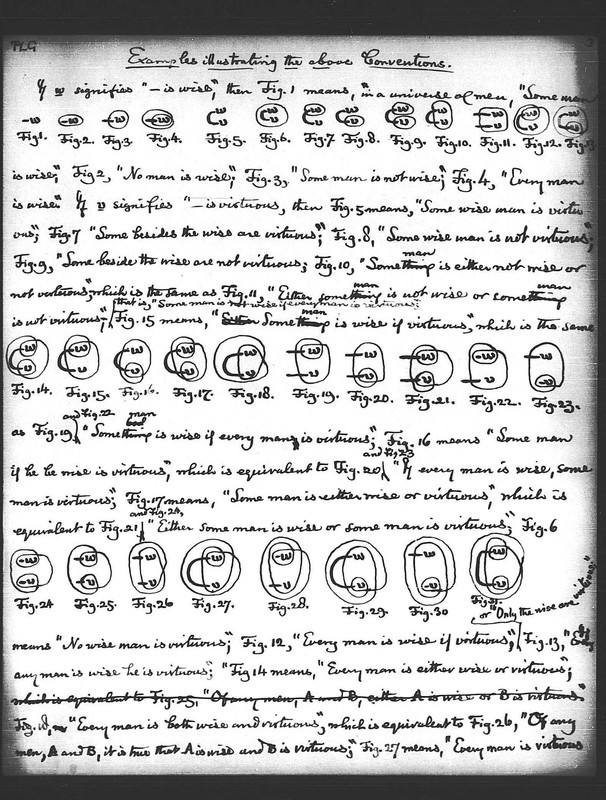 PLG
Examples illustrating the above Conventions.
If w signifies "— is wise," then Fig. 1 means, in a universe of men, "Some man
-w -w -w -w w v w v w v w v w v w v w v w v w v
Fig 1. Fig. 2. Fig. 3 Fig. 4. Fig. 5. Fig. 6. Fig. 7 Fig. 8. Fig. 9. Fig. 10. Fig. 11. Fig. 12. Fig. 13
is wise;" Fig 2, "No man is wise;" Fig. 3, "Some man is not wise;" Fig. 4, "Every man
is wise." If v signifies "— is virtuous, then Fig. 5 means, "Some wise man is virtu
ous;" Fig. 7 "Some besides the wise are virtuous;" Fig. 8, "Some wise man is not virtuous;"
Fig. 9, "Some beside the wise are not virtuous; Fig. 10, "Something man is either not wise or
not virtuous," which is the same as Fig. 11, "Either something man is not wise or something man
that is, "Some man is not wise if every man is virtuous;"
is not virtuous;" Fig. 15 means, "Either Something man is wise if virtuous," which is the same
w v w v w v w v w v w v w v w v w v w v
Fig. 14. Fig. 15. Fig. 16. Fig. 17. Fig. 18. Fig. 19. Fig. 20. Fig. 21. Fig. 22. Fig. 23.
and Fig. 22
as Fig. 19, "Something man is wise if every man is virtuous;" Fig. 16 means "Some man
and Fig 23
if he be wise is virtuous," which is equivalent to Fig. 20, "If every man is wise, some
man is virtuous;" Fig. 17 means, "Some man is either wise or virtuous," which is
and Fig. 24,
equivalent to Fig. 21, "Either some man is wise or some man is virtuous;" Fig. 6
w v w v w v w v w v w v w v w v
Fig. 24 Fig. 25. Fig. 26 Fig. 27. Fig. 28. Fig. 29. Fig. 30 Fig. 31.
or "Only the wise are virtuous;"
means "No wise man is virtuous;" Fig. 12, "Every man is wise if virtuous," Fig. 13, "
any man is wise he is virtuous;" Fig 14 means, "Every man is either wise or virtuous;"
which is equivalent to Fig. 25, "Of any men, A and B, either A is wise or B is virtuous"
Fig. 18, "Every man is both wise and virtuous," which is equivalent to Fig. 26, "Of any
men, A and B, it is true that A is wise and B is virtuous;" Fig. 27 means, "Every man is virtuous